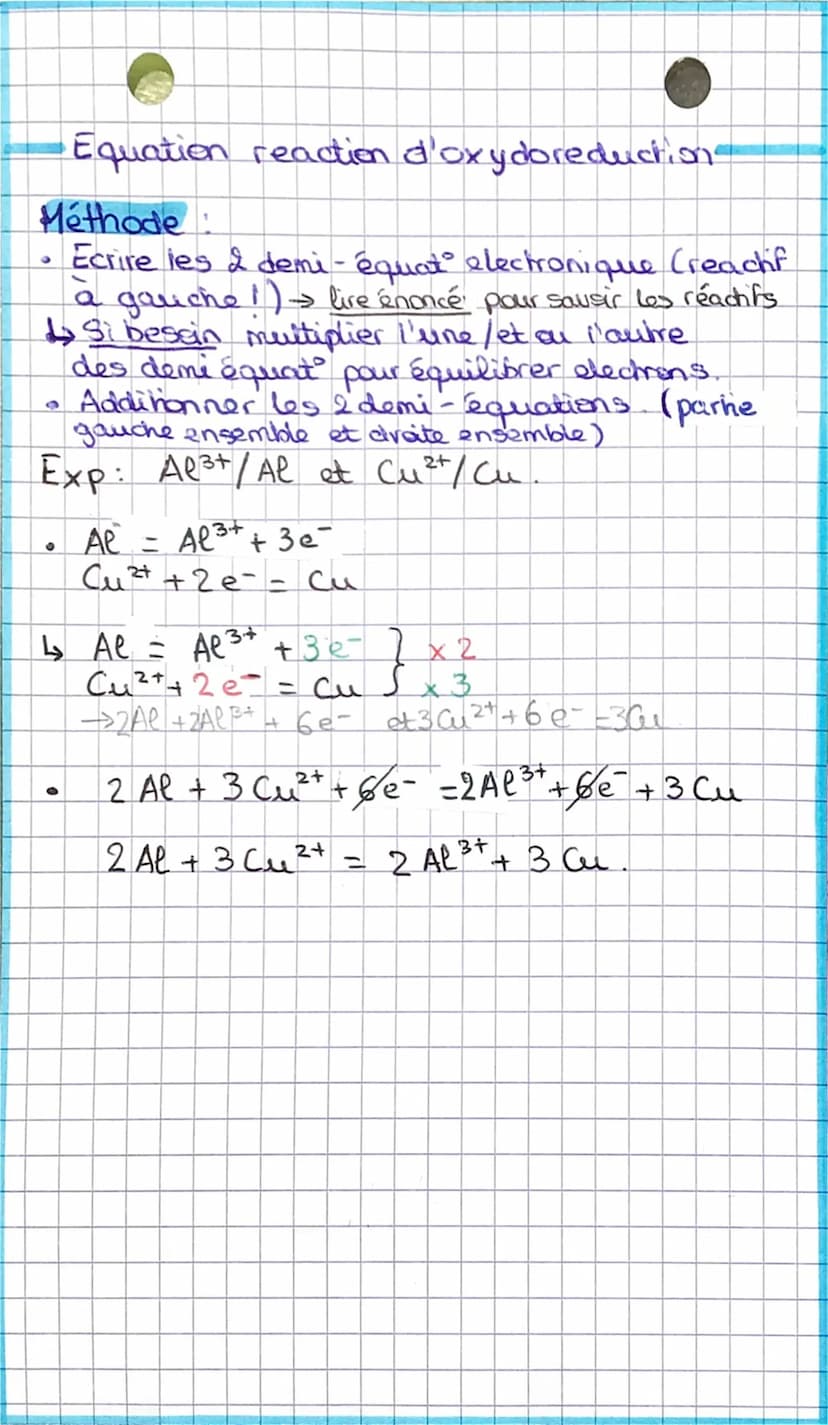 Equation reaction d'oxydoreduction
Méthode :
• Ecrire les 2 demi-équat° electronique (reactif
à gauche!) → lire énoncé pour savoir les réactifs
↳ Si besoin multiplier l'une /et ou l'autre
des demi équat° pour équilibrer electrons.
• Additionner les 2 demi-équations. (partie
gauche ensemble et droite ensemble)
Exp : Al³⁺/Al et Cu²⁺/Cu.
• Al = Al³⁺ + 3e⁻
Cu²⁺ + 2e⁻ = Cu
↳ Al = Al³⁺ + 3e⁻ } x 2
Cu²⁺ + 2e⁻ = Cu } x 3
→2Al +2Al³⁺ + 6e⁻ et 3Cu²⁺ + 6e⁻ =3Cu
• 2 Al + 3 Cu²⁺ + 6e⁻ =2Al³⁺ + 6e⁻ + 3 Cu
2 Al + 3 Cu²⁺ = 2 Al³⁺ + 3 Cu.